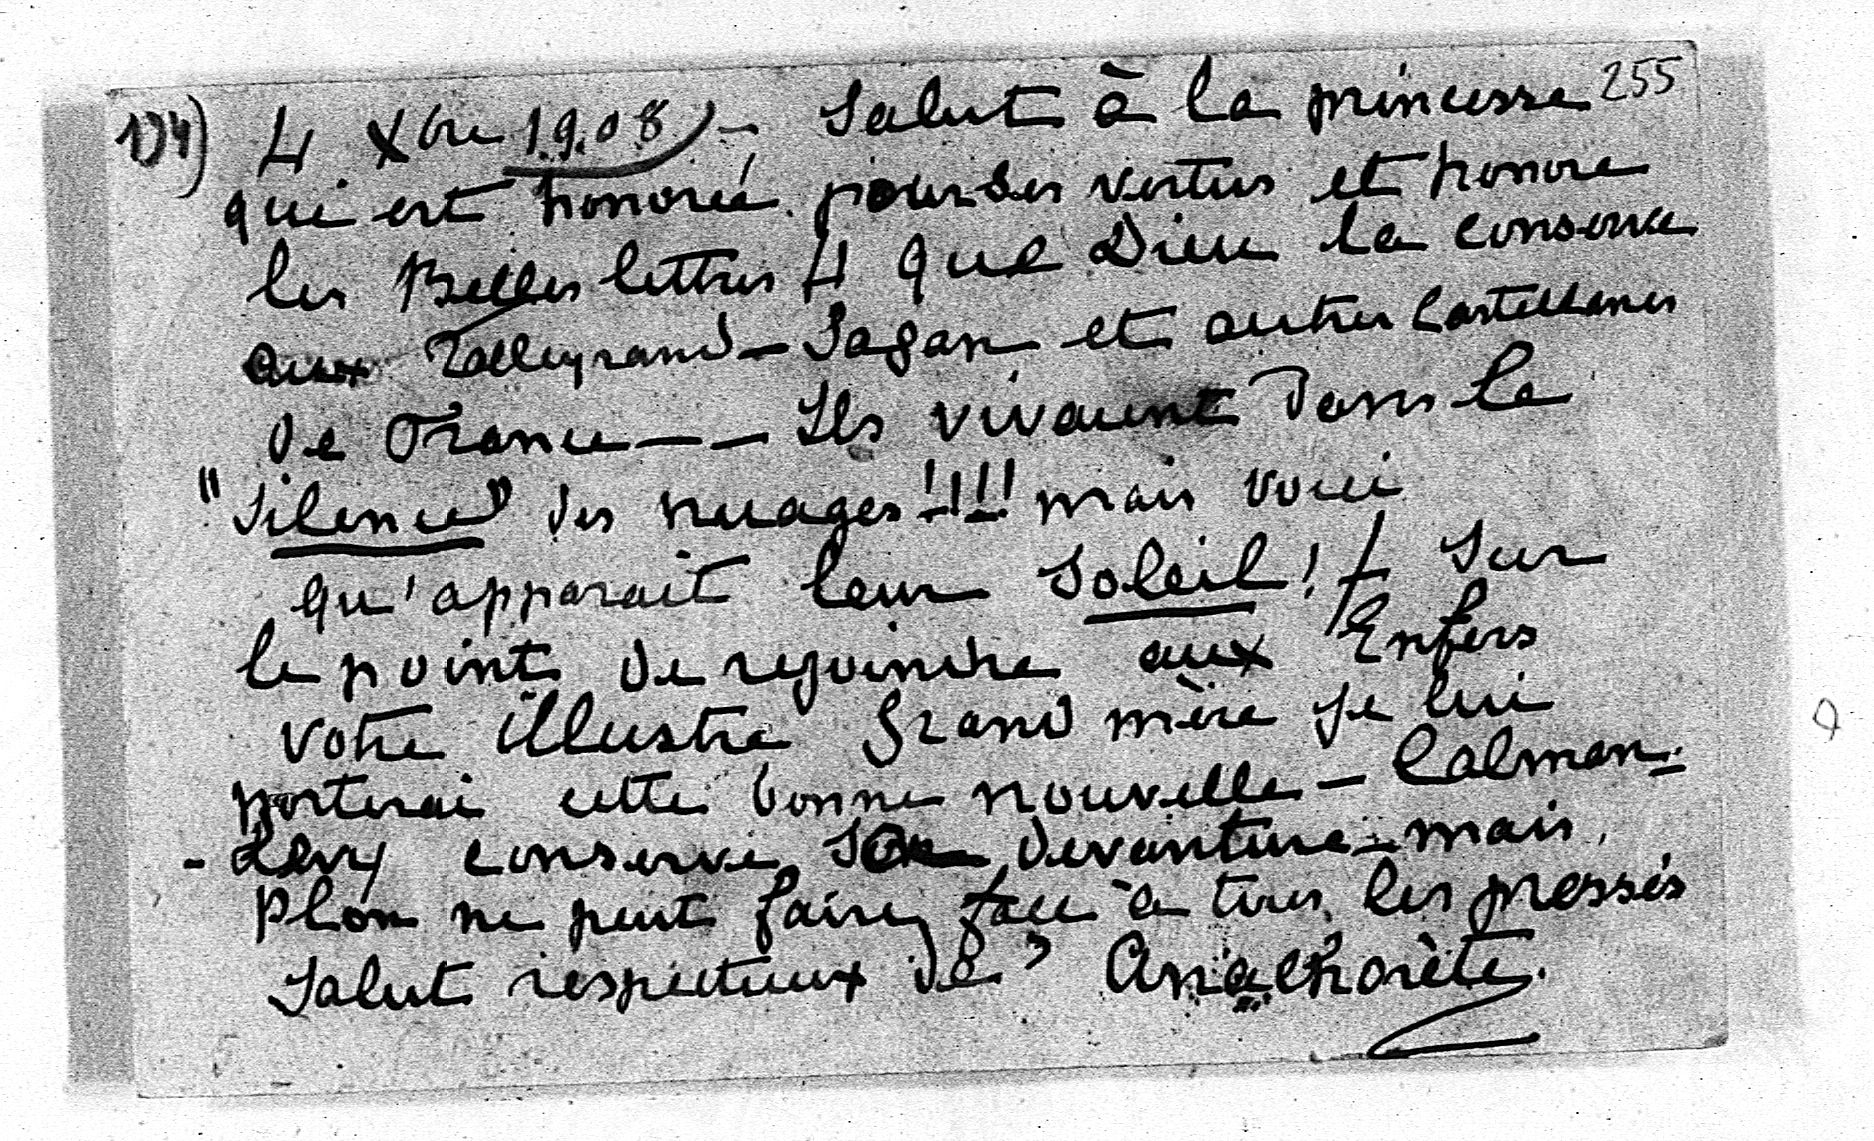 134) 4 Xbre 1908 - Salut à la princesse 255
qui est honorée pour ses vertus et honore
les Belles lettres 4 que Dieu la conserve
aux Talleyrand - Sagan et autres Castellanes
de France - - Ils vivaient dans le
"Silence" des nuages !!!! mais voici
qu'apparait leur Soleil ! 4 Sur
le point de rejoindre aux Enfers
votre illustre Grand mère je lui
porterai cette bonne nouvelle - Calman-
- Levy conserve sa devanture - mais
Plon ne peut faire face à tous les pressés
Salut respectueux de l'Anachorète.